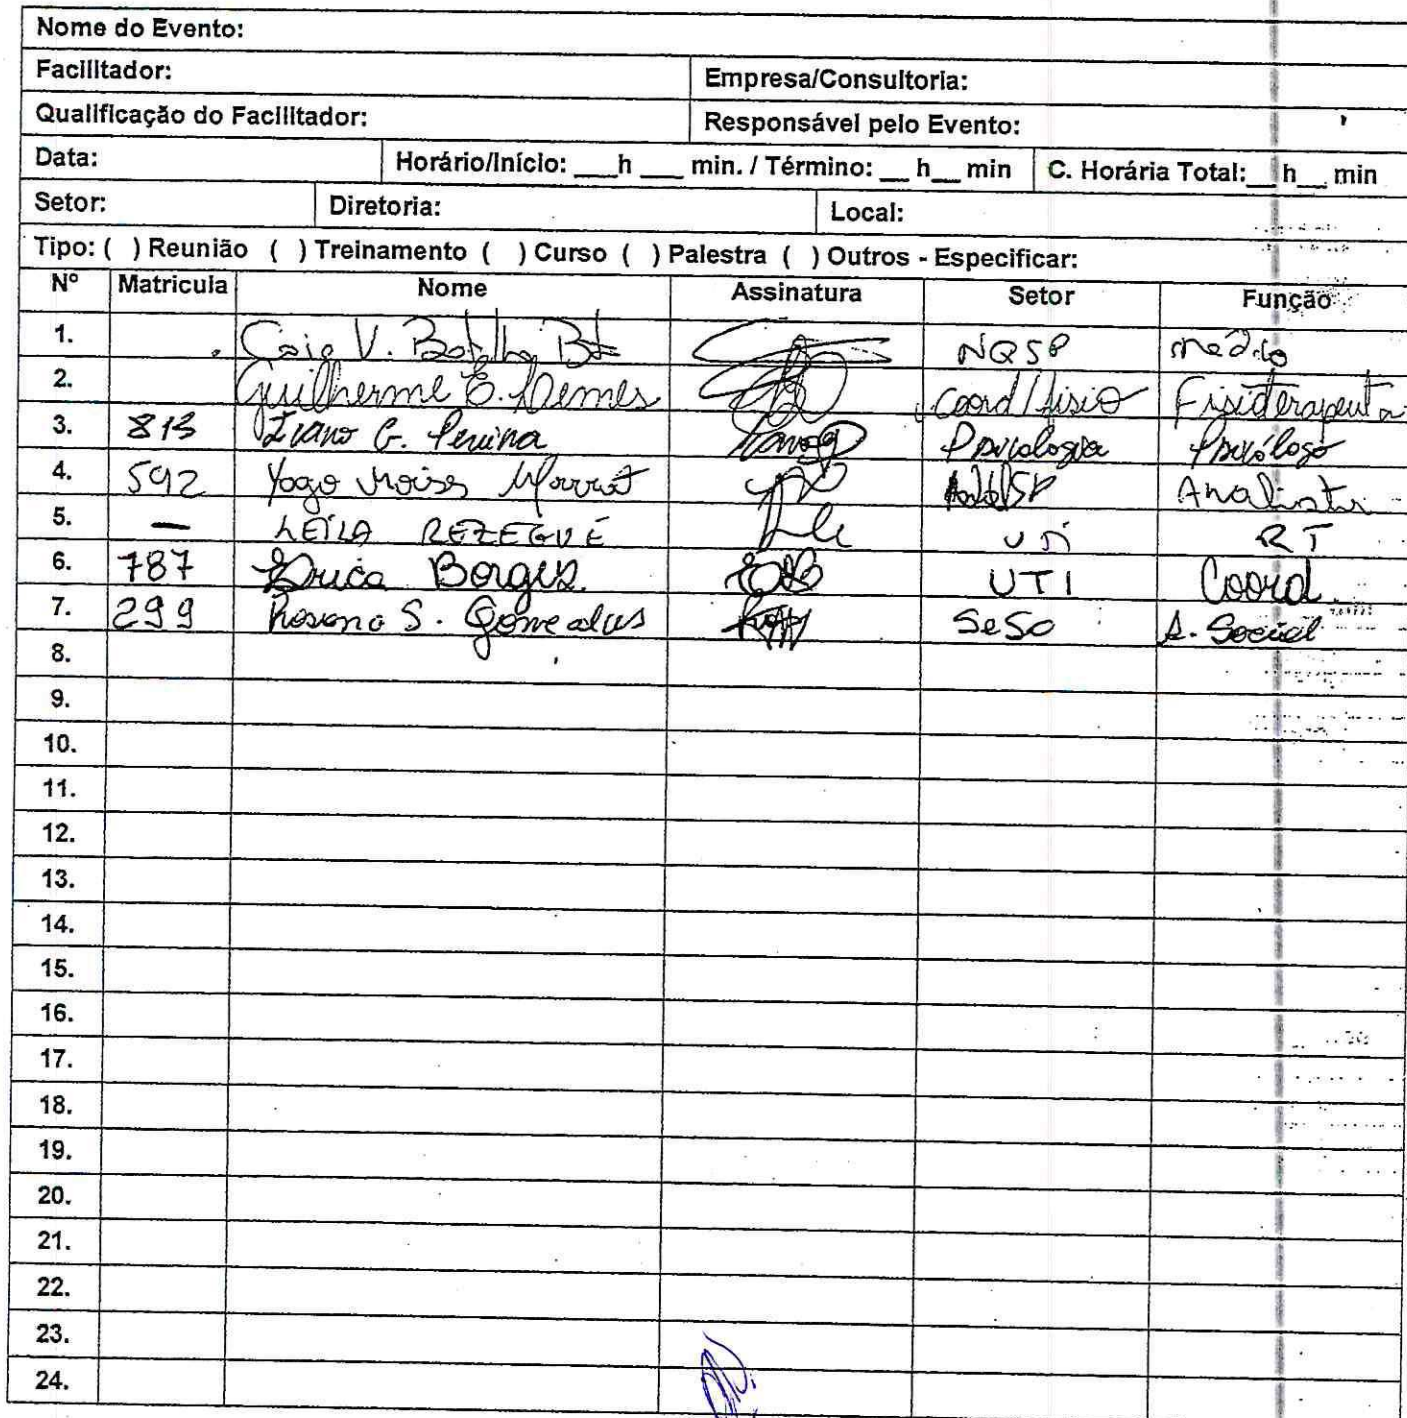 Nome do Evento:
Facilitador: Empresa/Consultoria:
Qualificação do Facilitador: Responsável pelo Evento:
Data: Horário/Início: ___h ___ min. / Término: __ h__ min C. Horária Total:__ h__ min
Setor: Diretoria: Local:
Tipo: ( ) Reunião ( ) Treinamento ( ) Curso ( ) Palestra ( ) Outros - Especificar:
Nº Matricula Nome Assinatura Setor Função
1. Caio V. NQSP médico
2. Guilherme E. coord/fisio Fisioterapeuta
3. 813 G. Psicologia Psicólogo
4. 592 Yago Moises Analista
5. — LEILA REZEGUE UTI RT
6. 787 Erica Borges. UTI Coord.
7. 299 Rosana S. Goncalves SeSo A. Social
8.
9.
10.
11.
12.
13.
14.
15.
16.
17.
18.
19.
20.
21.
22.
23.
24.